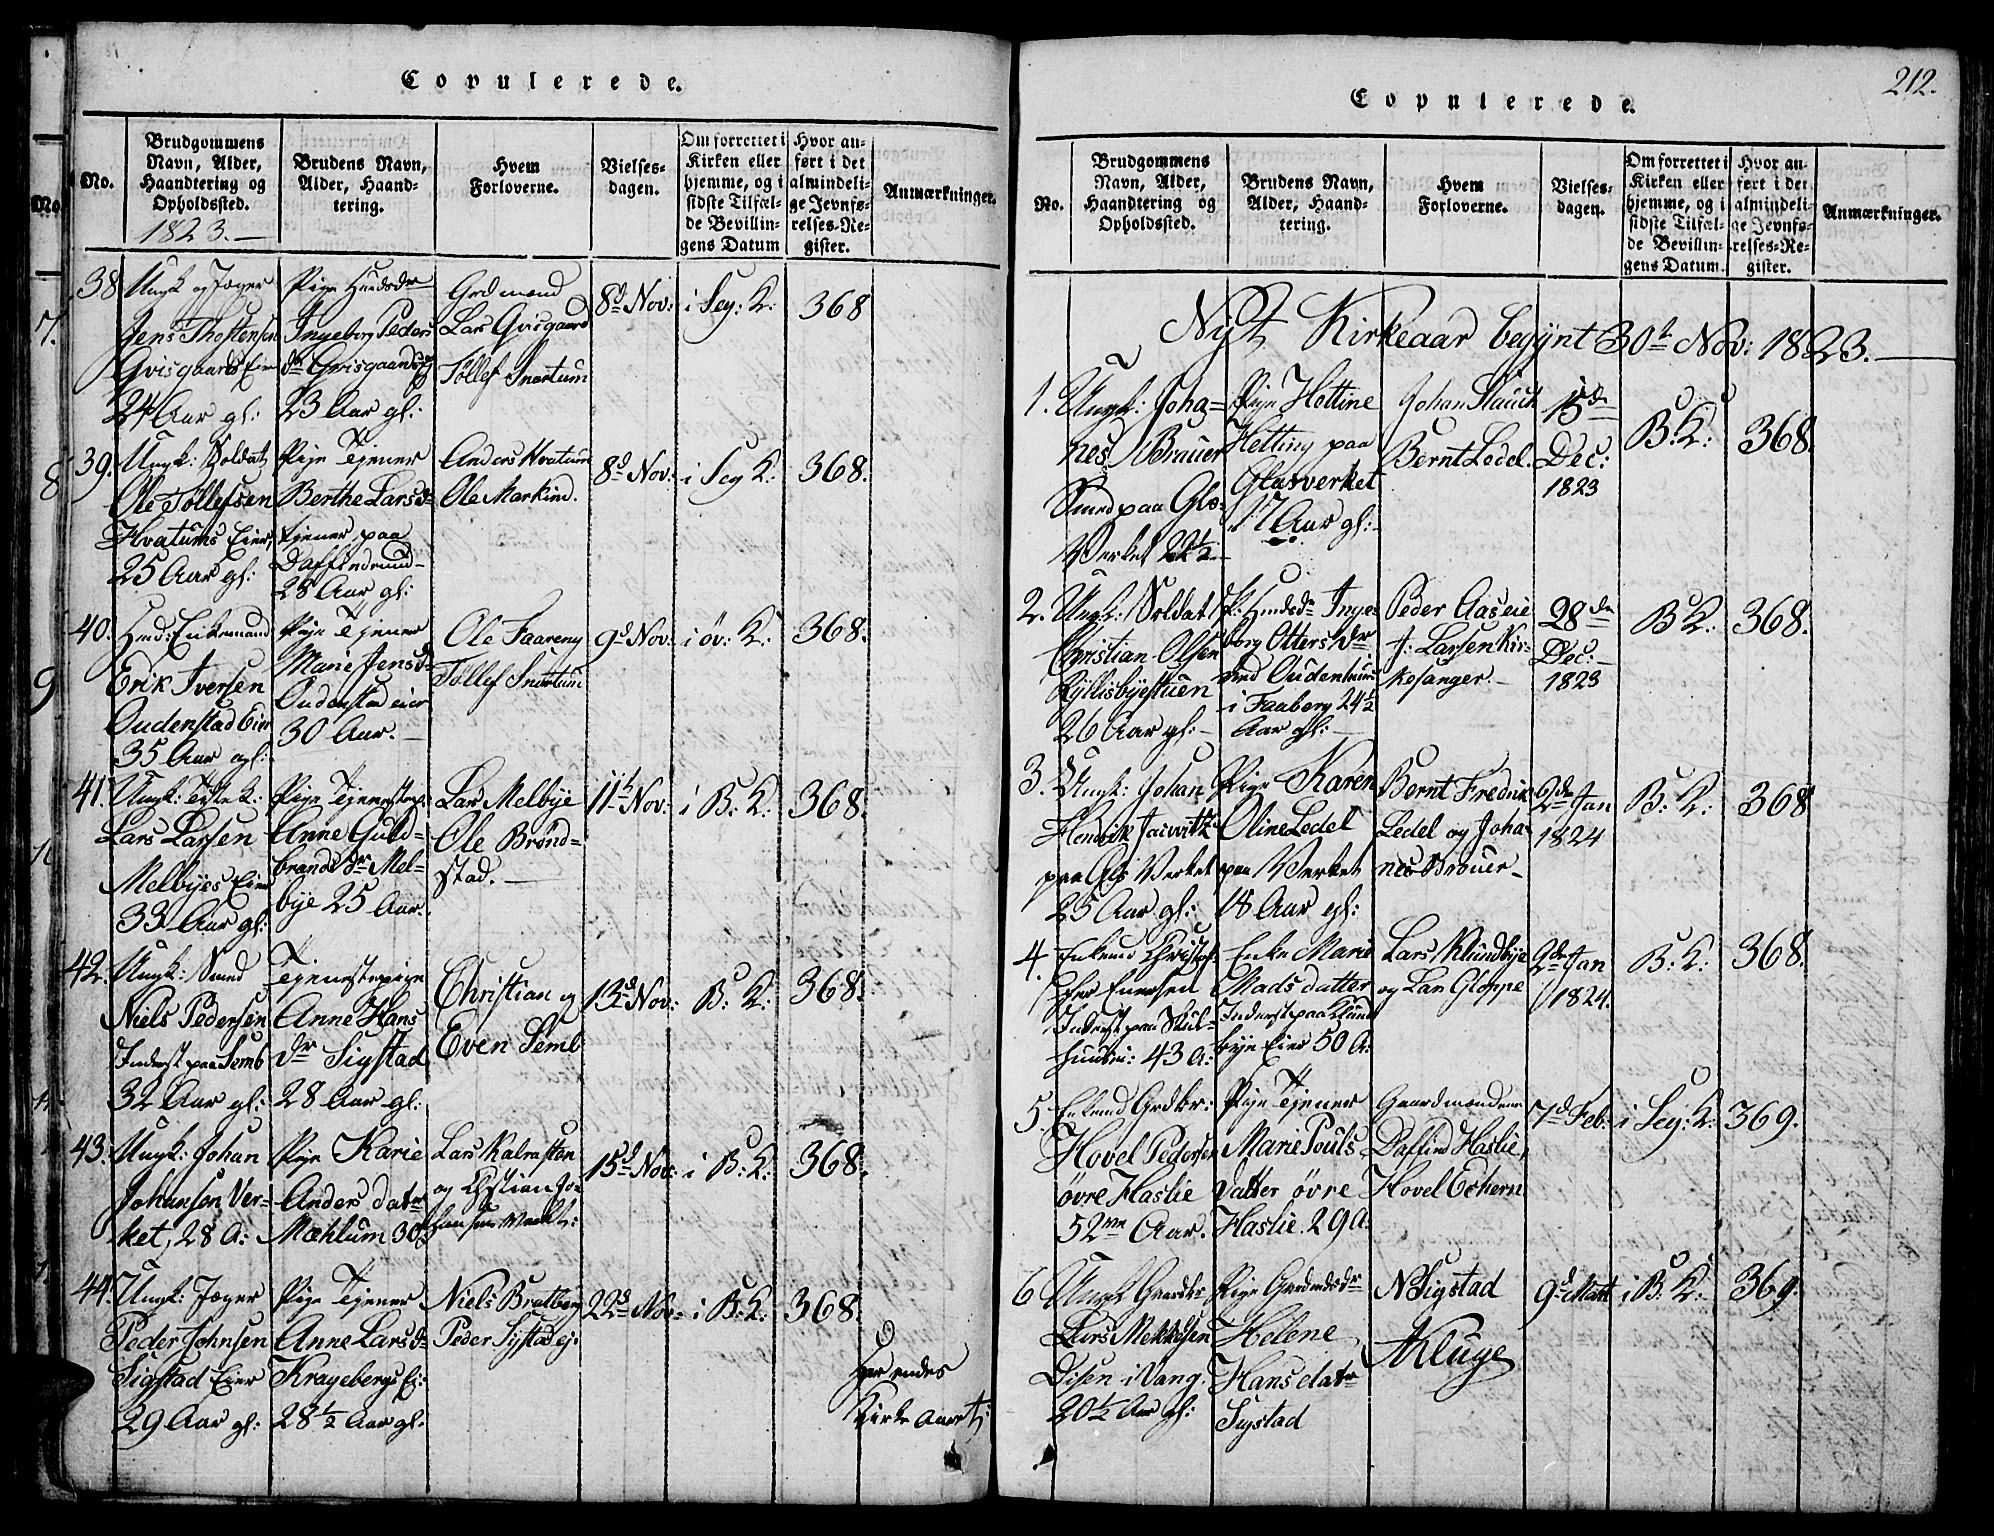 Copulerede.
No.
Brudgommens
Navn, Alder,
Haandtering og
Opholdssted.
1823.
Brudens Navn,
Alder, Haand-
tering.
Hvem
Forloverne.
Vielses-
dagen.
Om forrettet i
Kirken eller
hjemme, og i
sidste Tilfæl-
de Bevillin-
gens Datum
Hvor an-
ført i det
almindeli-
ge Jevnfø-
relses-Re-
gister.
Anmærkninger.
38
Ungk og Jæger
Jens Thostensen
Gvisgaards Eie
24 Aar gl:
Pige
Ingeborg Peders
dr Gvisgaards
23 Aar gl:
Grdmænd
Lars Gvisgaard
Tollef Snortum
8d Nov:
i Seg: K:
368
39.
Ungk: Soldat
Ole Tollefsen
Hvatums Eier,
25 Aar gl:
Pige Tjener
Berthe Larsd
tjener paa
Daffindrud
28 Aar gl:
Anders Hvatum
Ole Markind.
8d Nov:
i Seg K:
368.
40.
Hmd: Enkemand
Erik Iversen
Oudenstad Eier
35 Aar gl:
Pige Tjener
Marie Jensd
Oudenstad eier
30 Aar.
Ole Faareng
Tollef Snortum
9d Nov:
i øv: K:
368.
41.
Ungk:
Lars Larsen
Melbyes Eier
33 Aar gl:
Pige Tjenestepi:
Anne Guld-
brands dr Mel-
bye 25 Aar.
Lars Melbye
Ole Brønd-
stad.
11t Nov:
i B: K:
368.
42.
Ungk: Smed
Niels Pedersen
Inderst paa Semb
32 Aar gl:
Tjenestepige
Anne Hans
dr Sigstad
28 Aar gl:
Christian og
Even Semb
13d Nov:
B: K:
368.
43.
Ungk: Johan
Johanson Ver-
ket, 28 A:
Pige Karie
Anders datr
Mæhlum 30
Lars Kalrasten
og Chstian Jo-
hansen
15d Nov:
i B: K:
368.
44.
Ungk: Jæger
Peder Johnsen
Sigstad Eier
29 Aar gl:
Pige Tjener
Anne Larsd
Kragebergs Ei:
28½ Aar gl.
Niels Bratberg
Peder Sigstad ej:
22d Nov:
i B: K:
368.
Her endes
Kirke Aaret:
212.
Copulerede.
No.
Brudgommens
Navn, Alder,
Haandtering og
Opholdssted.
Brudens Navn,
Alder, Haand-
tering.
Hvem
Forloverne.
Vielses-
dagen.
Om forrettet i
Kirken eller
hjemme, og i
sidste Tilfæl-
de Bevillin-
gens Datum.
Hvor an-
ført i det
almindeli-
ge Jevnfø-
relses-Re-
gister.
Anmærkninger.
Nyt Kirkeaar begynt 30t Nov: 1823.
1.
Ungk: Joha-
nes Brauer
Smed paa Glas-
Verket 22½
Pige Hettine
Hetting paa
Glasverket
17 Aar gl:
Johan Stauch
Bernt Ledel.
15de
Dec:
1823
B: K:
368.
2.
Ungk: Soldat
Christian Olsen
Rytlisbyestuen
26 Aar gl:
P: Hmdsdr Inge-
borg Otters dr
ved Oudenhuus
i Faaberg 24½
Aar gl:
Peder Aaseie
J: Larsen Kir-
kesanger.
28de
Dec:
1823
B K:
368.
3.
Ungk: Johan
Hendrik Jaswitz
paa Gls Verket
25 Aar gl:
Pige Karen
Oline Ledel
paa Verket
18 Aar gl:
Bernt Fredrik
Ledel og Joha-
nes Brouer
2de Jan
1824
B: K:
368
4.
Enkemd Christof-
fer Evensen
Inderst paa Skul-
huusei: 43 A:
Enke Marie
Mads datter
Inderst paa Klund
bye Eier 50 A:
Lars Klundbye
og Lars Gloppe
2de Jan
1824.
B: K:
368.
5.
Enkemd Grdbr:
Hovel Pedersen
øvre Haslie
52 Aar.
Pige Tjener
Marie Pouls
datter øvre
Haslie 29 A.
Gaardmændene
Daffind Haslie
Hovel Echern
7d Feb:
i Seg: K:
369.
6
Ungk Gaardbr
Lars Mekkelsen
Disen i Vang.
20½ Aar gl:
Pige Gaardmdsdr
Helene
Hans datr
Sigstad
N Sigstad
A Kluge
9d Mart
i B: K:
369.